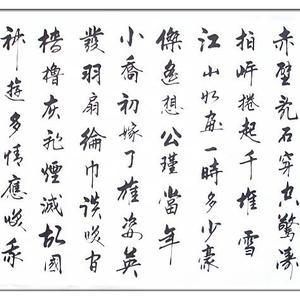 赤壁乱石穿空驚濤
拍岸捲起千堆雪
江山如畫一時多少豪
傑遙想公瑾當年
小喬初嫁了雄姿英
發羽扇綸巾談咲間
檣櫓灰飛煙滅故國
神遊多情應咲我